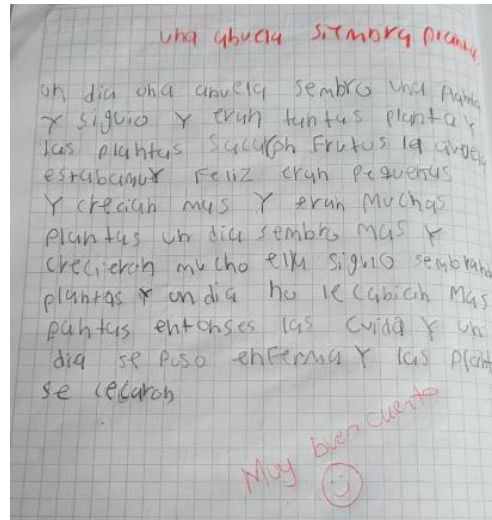 una abuela siembra planta
un dia una abuela sembro una planta
y siguio y eran tantas planta y
las plantas sacaron Frutos la abuela
estabamuy Feliz eran pequeñas
y crecian mas y eran muchas
plantas un dia sembro mas y
crecieron mucho ella siguio sembrand
plantas y un dia no le cabian mas
pantas entonses las cuida y un
dia se puso enferma y las plant
se cecaron
Muy buen cuento